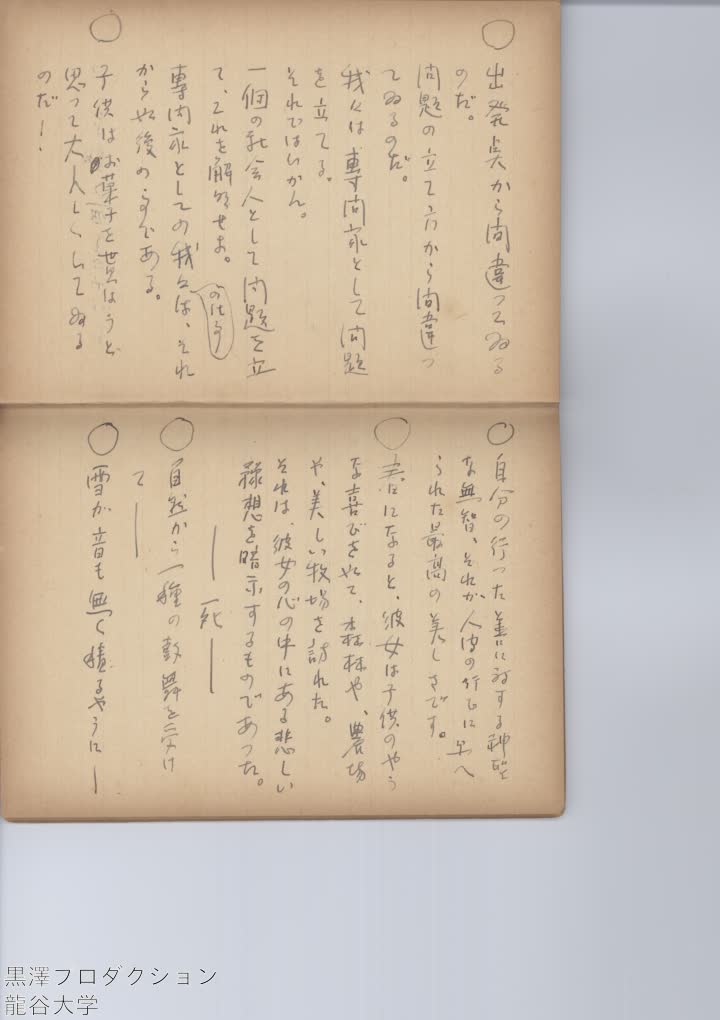 ○
出発点から間違つてゐる
のだ。
問題の立て方から間違つ
てゐるのだ。
我々は、専問家として問題
を立てる。
それではいかん。
一個の社会人として問題を立
て、これを解決せよ。
専問家としての我々は、それ
の仕事
からの後の
である。
○
子供はお菓子を貰はうと
思つて大人しくしてゐる
のだ——.
○
自分の行つた善に対する神聖
な無智、それが人間の行ひに与へ
られた最高の美しさです。
○
春になると、彼女は子供のやう
な喜びを以て、森林や、農場
や、美しい牧場を訪れた。
それは、彼女の心の中にある悲しい
豫想を暗示するものであつた。
——死——
○
自然から一種の鼓舞を受け
て——
○
雪が音も無く積るやうに——
黒澤プロダクション
龍谷大学